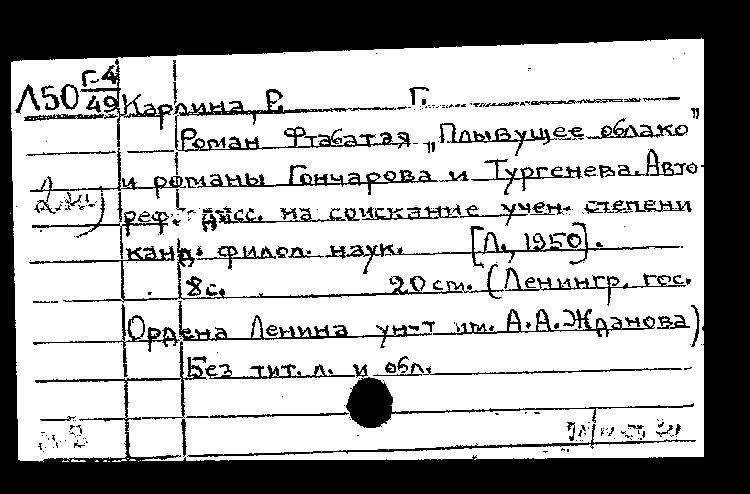 Л50 Г-4/49
Карлина, Р. Г.
Роман Фтабатая „Плывущее облако”
и романы Гончарова и Тургенева. Авто-
реф. дисс. на соискание учен. степени
канд. филол. наук. [Л., 1950].
8 с. 20 см. (Ленингр. гос.
Ордена Ленина ун-т им. А.А. Жданова).
Без тит. л. и обл.